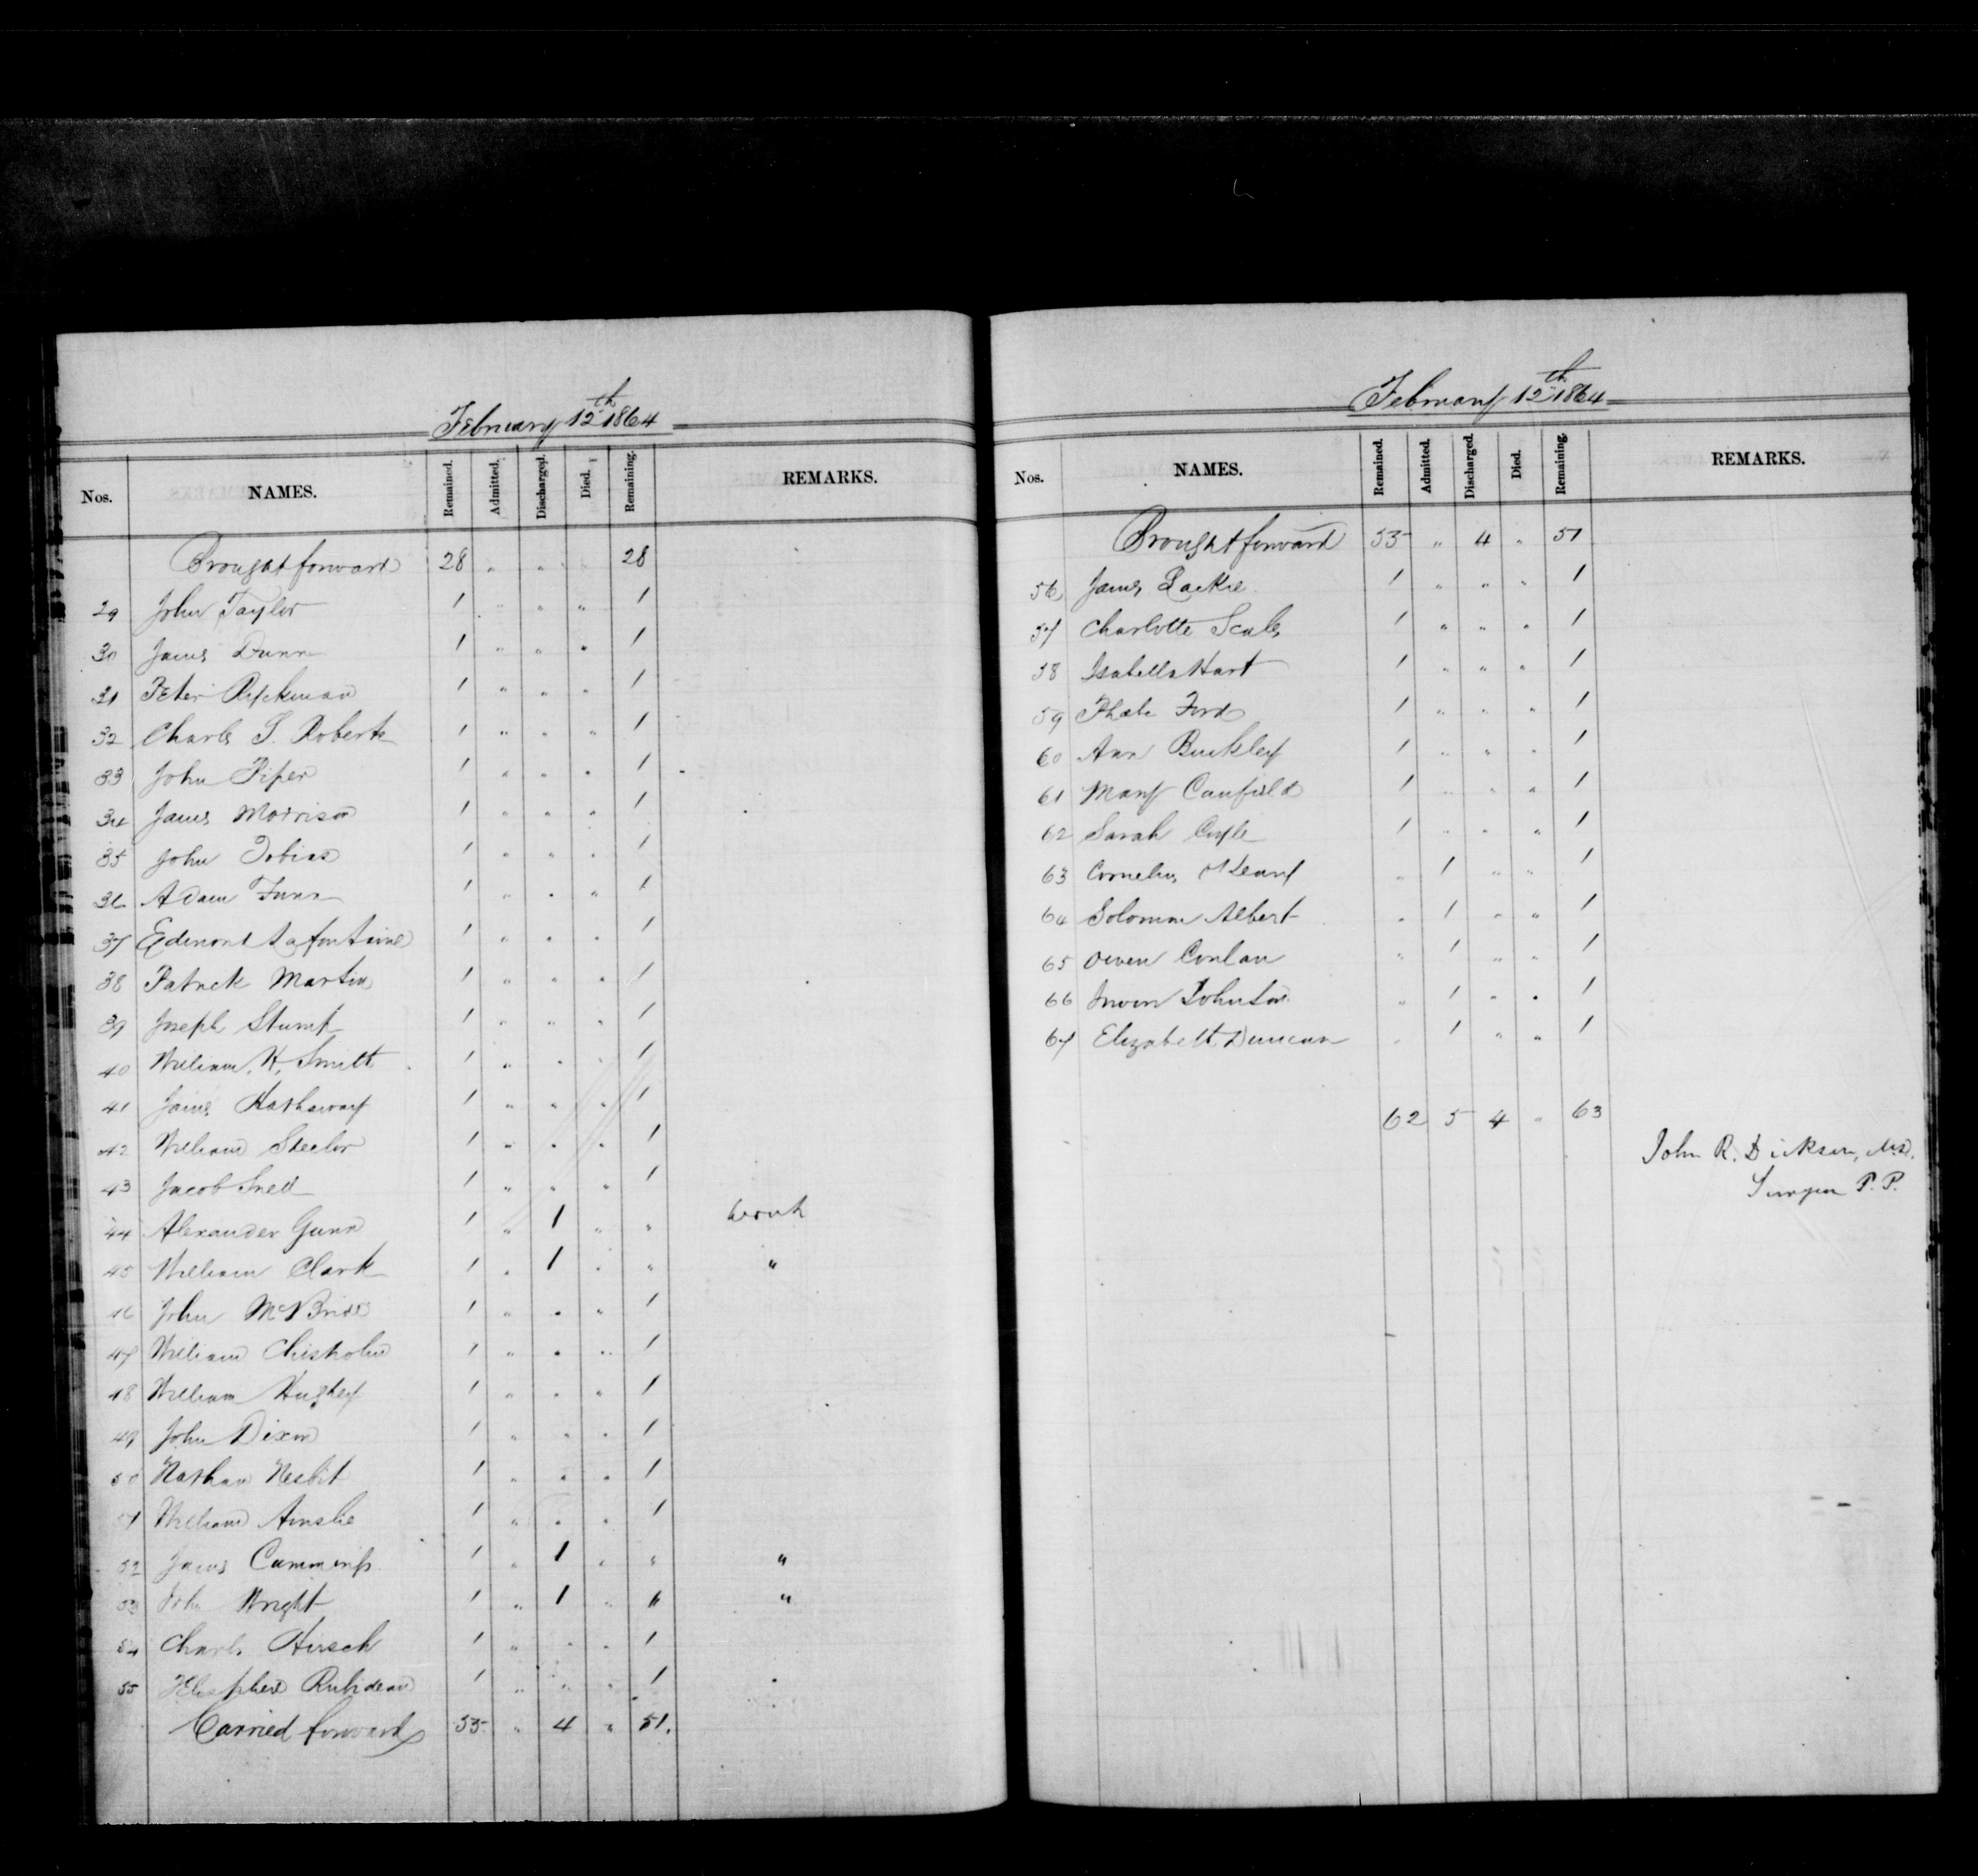 February 12th 1864
Nos. NAMES. Remained. Admitted. Discharged. Died. Remaining. REMARKS.
Brought forward 28 " " 28
29 John Taylor 1 " " " 1
30 James Dunn 1 " " " 1
31 Peter Ryckman 1 " " " 1
32 Charles S. Roberts 1 " " " 1
33 John Piper 1 " " " 1
34 James Morrison 1 " " " 1
35 John Tobias 1 " " " 1
36 Adam Funn 1 " " " 1
37 Edmond Lafontaine 1 " " " 1
38 Patrick Martin 1 " " " 1
39 Joseph Stump 1 " " " 1
40 William H. Smith 1 " " " 1
41 James Hathaway 1 " " " 1
42 William Steeler 1 " " " 1
43 Jacob Snell 1 " " " 1
44 Alexander Gunn 1 " 1 " " Work
45 William Clark 1 " 1 " " "
46 John McBride 1 " " " 1
47 William Chisholm 1 " " " 1
48 William Hughey 1 " " " 1
49 John Dixon 1 " " " 1
50 Nathan Nesbit 1 " " " 1
51 William Ainslie 1 " " " 1
52 James Cummings 1 " 1 " " "
53 John Wright 1 " 1 " " "
54 Charles Hirsch 1 " " " 1
55 Rubideau 1 " " " 1
Carried forward 55 " 4 " 51.
February 12th 1864
Nos. NAMES. Remained. Admitted. Discharged. Died. Remaining. REMARKS.
Brought forward 55 " 4 " 51
56 James Lackie 1 " " " 1
57 Charlotte Scales 1 " " " 1
58 Isabella Hart 1 " " " 1
59 Phæbe Ford 1 " " " 1
60 Ann Buckley 1 " " " 1
61 Mary Canfield 1 " " " 1
62 Sarah Coyle 1 " " " 1
63 Cornelius 1 " " 1
64 Solomon Albert " 1 " " 1
65 Owen Conlan " 1 " " 1
66 Irwin Johnson " 1 " " 1
67 Elizabeth Duncan " 1 " " 1
62 5 4 " 63
John R. Dickson, M.D.
Surgeon P. P.